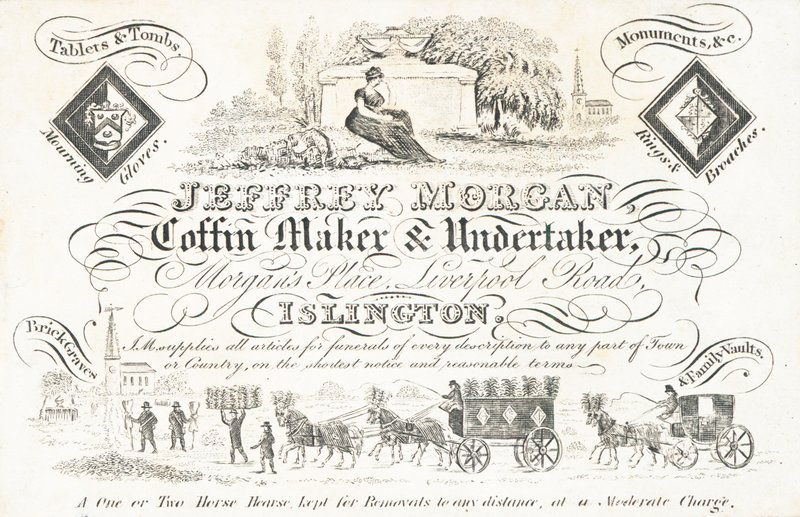 Tablets & Tombs.
Monuments, &c.
Mourning Gloves.
Rings & Broaches.
JEFFREY MORGAN,
Coffin Maker & Undertaker,
Morgan's Place, Liverpool Road,
ISLINGTON.
J.M. supplies all articles for funerals of every description to any part of Town
or Country, on the shortest notice and reasonable terms
Brick Graves
& Family Vaults.
A One or Two Horse Hearse, kept for Removals to any distance, at a Moderate Charge.